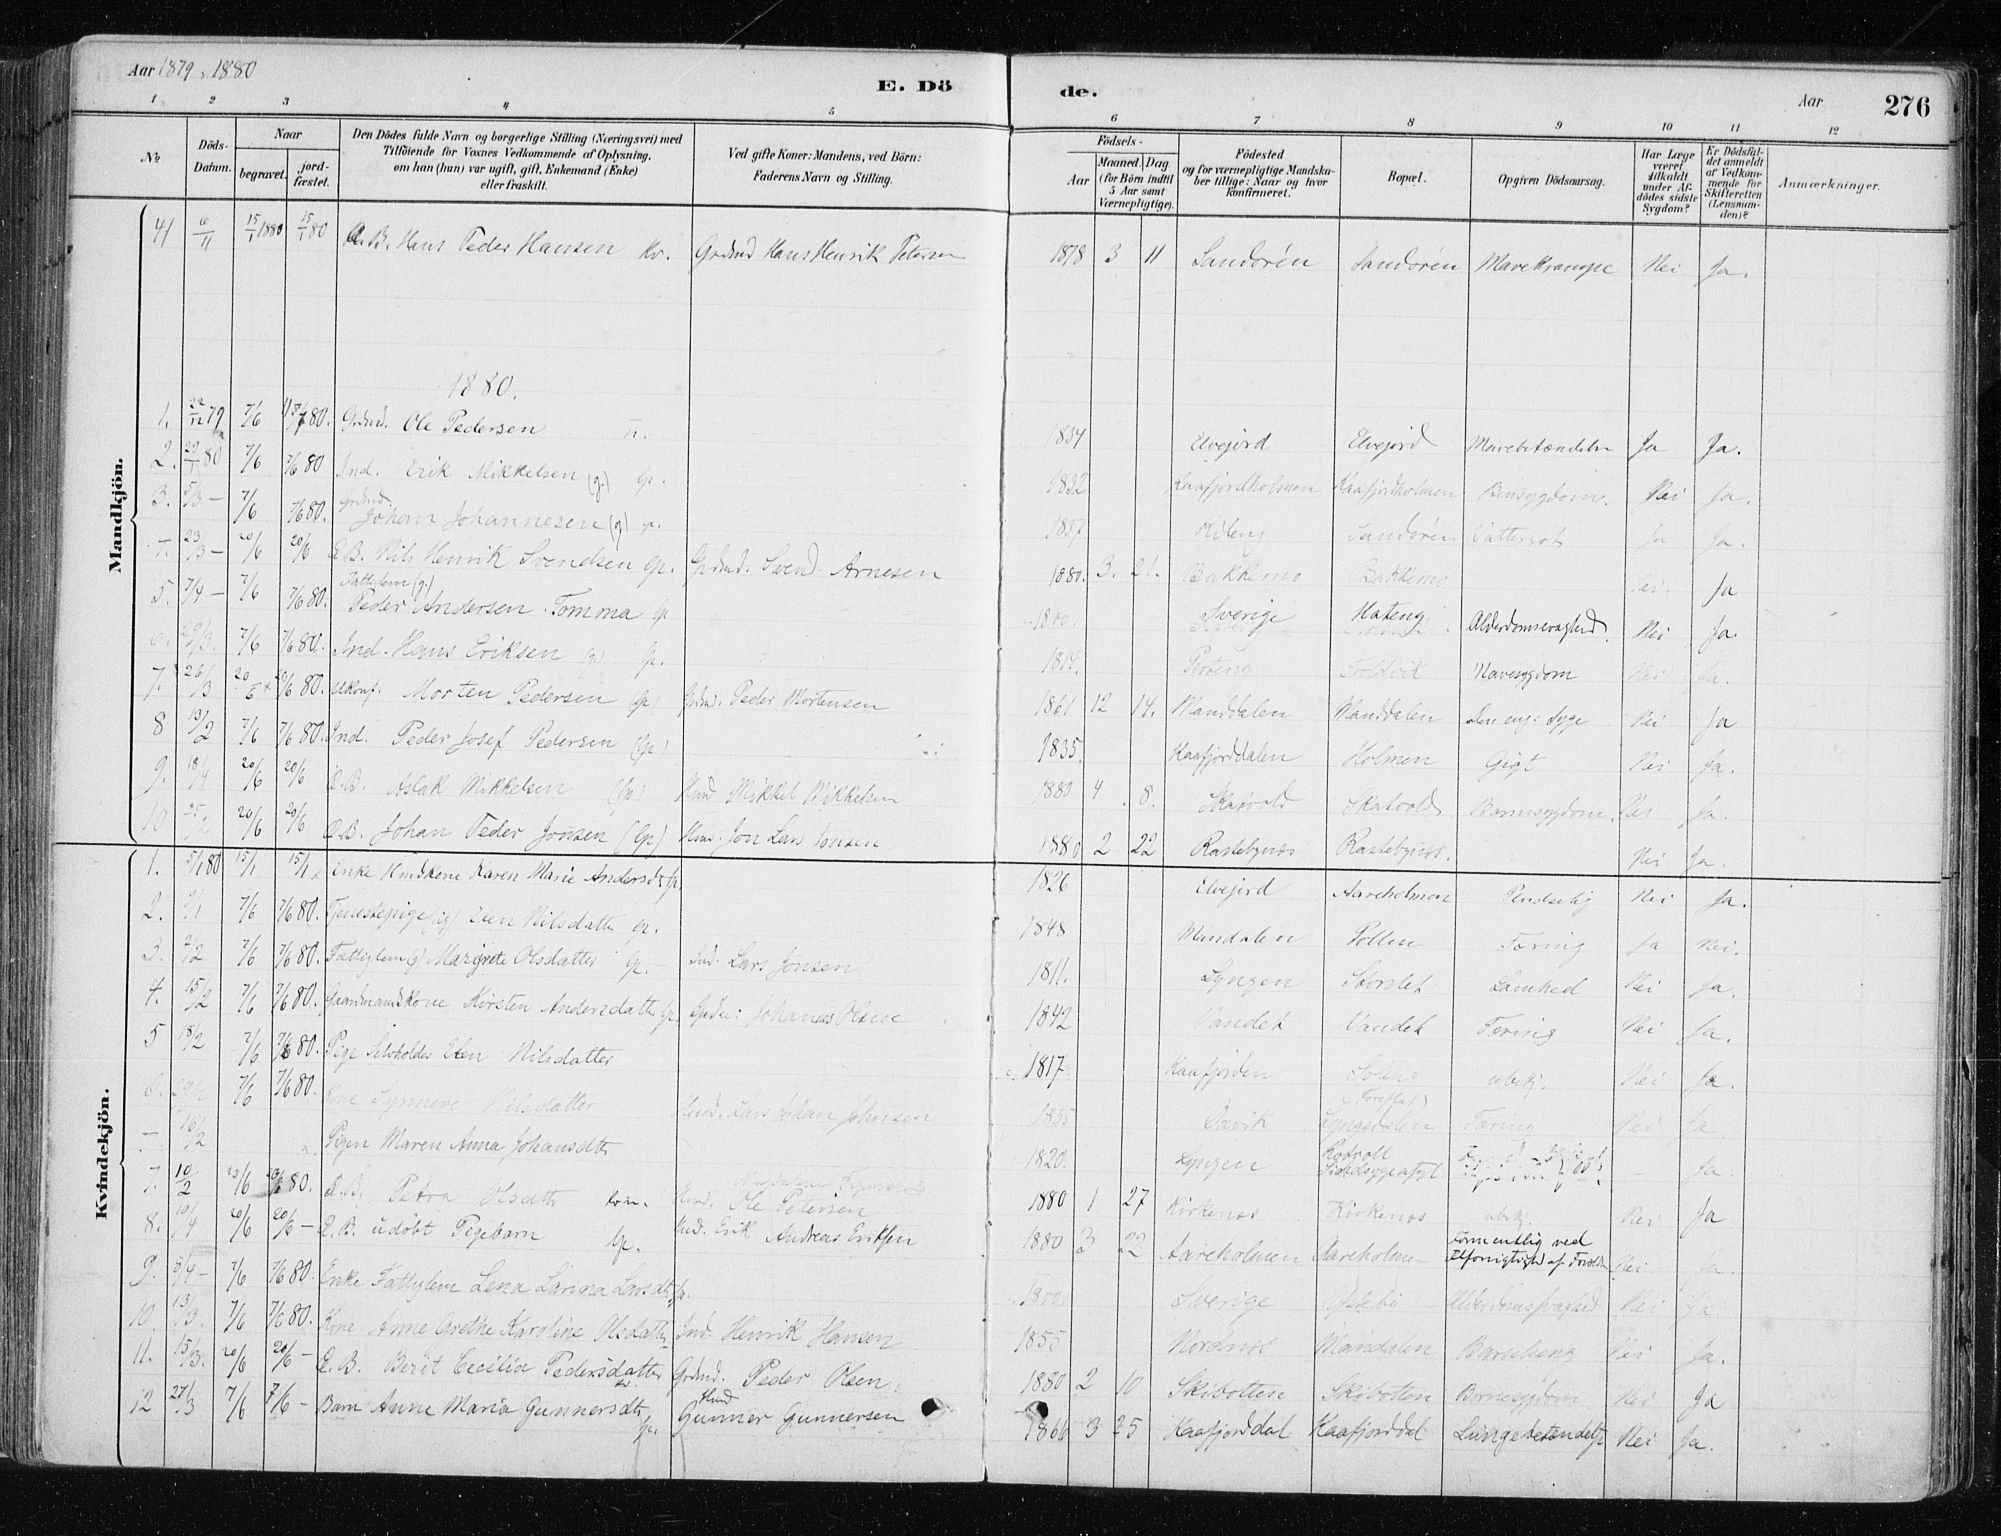 Aar 1879, 1880
E. Dö
de.
Aar
276
1 2 3 4 5 6 7 8 9 10 11 12
No
Döds-Datum.
Naar
begravet.
jord-fæstet.
Den Dödes fulde Navn og borgerlige Stilling (Næringsvei) med
Tilföiende for Voxnes Vedkommende af Oplysning,
om han (hun) var ugift, gift, Enkemand (Enke)
eller fraskilt.
Ved gifte Koner: Mandens, ved Börn:
Faderens Navn og Stilling.
Födsels-
Aar
Maaned. Dag.
(for Börn indtil
5 Aar samt
Værnepligtige).
Födested
og for værnepligtige Mandska-
ber tillige: Naar og hvor
konfirmeret.
Bopæl.
Opgiven Dödsaarsag.
Har Læge
været
tilkaldt
under Af-
dödes sidste
Sygdom?
Er Dödsfal-
det anmeldt
af Vedkom-
mende for
Skifteretten
(Lensman-
den)?
Anmærkninger.
Mandkjön.
41 6/11 15/1 1880 15/1 80 Hans Peder Hansen Kv. Grdmd Hans Henrik Petersen 1878 3 11 Sandørén Sandørén Mavekrampe Nei Ja.
1880.
1. 22/12 79 7/6 80. Grdmd. Ole Pedersen 1834 Elvejord Elvejord Mavebetændelse Ja Ja.
2. 29/1 80 7/6 7/6 80 Ind. Erik Mikkelsen (g.) Gp. 1832 Kaafjordholmen Kaafjordholmen Bensygdom. Nei Ja.
3. 5/3 - 7/6 7/6 80. Grdmd Johan Johannesen (g) 1837 Sandørén Ja Ja.
23/3 - 20/6 20/6 E.B. Nils Henrik Svendsen Gp. Grdmd. Svend Arnesen 1880. 3. 21. Bakkemo Bakkemo Ja
5. 7/4 - 7/6 7/6 80. Fattiglem (g.) Peder Andersen Tomma Gp Sverige Hateng Alderdomssvaghed Nei Ja
6. 29/3. 7/6 7/6 80. Ind. Hans Eriksen (g) Gp. 1814. Troldvik Mavesygdom Nei Ja.
7. 26/3 80. Ukonf. Morten Pedersen (Gp) Grdmd. Peder Mortensen 1861 12 14. Manddalen Manddalen Den eng: Syge Nei Ja
8 13/2 7/6 7/6 80. Ind. Peder Josef Pedersen (Gp) 1835. Kaafjorddalen Holmen Gigt Nei Ja.
9. 18/4 20/6 20/6 E.B. Aslak Mikkelsen (Gp) Hmd Mikkel Mikkelsen 1880 4 8. Skatvold Skatvold Barnesygdom. Nei Ja.
10 25/2 20/6 20/6 E.B. Johan Peder Jonsen (Gp) Hmd. Jon Lars Jonsen 1880 2 22 Rastebynæs Rastebynæs. Nei Ja.
Kvindekjön.
1. 5/1 80 15/1 15/1 Enke Karen Marie Andersd. Gp. 1826 Elvejord Aareholmen Nei Ja.
2. 7/6 7/6 80. Tjenestepige (ug) Elen Nilsdatter Gp. 1848 Mandalen Pollen Tæring Ja Nei.
3. 2/2 7/6 7/6 80. Fattiglem (g) Margrete Olsdatter Gp. - Ind. Lars Jonsen 1811. Lyngen Storslet Lamhed Nei Ja.
4. 15/2 7/6 7/6 80. Gaardmandskone Kirsten Andersdatter Gp. Johannes Olsen 1842 Vandet Vandet Tæring Nei Ja.
5 18/2 7/6 7/6 80. Pige Elen Nilsdatter 1817 Kaafjorden ubekj. Nei Ja.
6. 7/6 7/6 80. Kone Synneve Nilsdatter Hmd. Lars Johan Johnsen 1835 Tæring Nei Ja.
- 16/2 Pigen Maren Anna Johansdtr 1820. Lyngen Rotvolt Sindssygeasyl - Ja.
7. 10/2 20/6 80. E.B. Petra Olsdatter Kvæn. Hmd. Ole Petersen 1880 1 27 Kirkenæs Kirkenæs ubekj. Nei Ja
8. 10/4 20/6 20/6 - E.B. udöbt Pigebarn Gp. Hmd. Erik Andreas Eriksen 1880 3 22 Aareholmen Aareholmen Formentlig ved Uforsigtighed af Forældre Nei Ja.
9. 8/4 - 7/6 7/6 80. Enke Fattiglem Lena Larina Larsdtr Gp. 1800. Sverige Alderdomssvaghed Nei Ja.
10. 13/3. 7/6 7/6 80. Kone Anne Grethe Karoline Olsdatter Ind. Henrik Hansen 1855 Nordnæs Mandalen Barselseng Nei Ja.
11. 15/3. 20/6 20/6 - E.B. Berit Cecilia Pedersdatter Grdmd. Peder Olsen. 1880 2 10 Skibotten Skibotten Børnesygdom Nei Ja
12 27/3 7/6 7/6 - Barn Anne Maria Gunnersdtr Gp. Hmd Gunner Gunnersen 1866 3 25 Kaafjorddal Kaafjorddal Lungebetændelse Nei Ja.